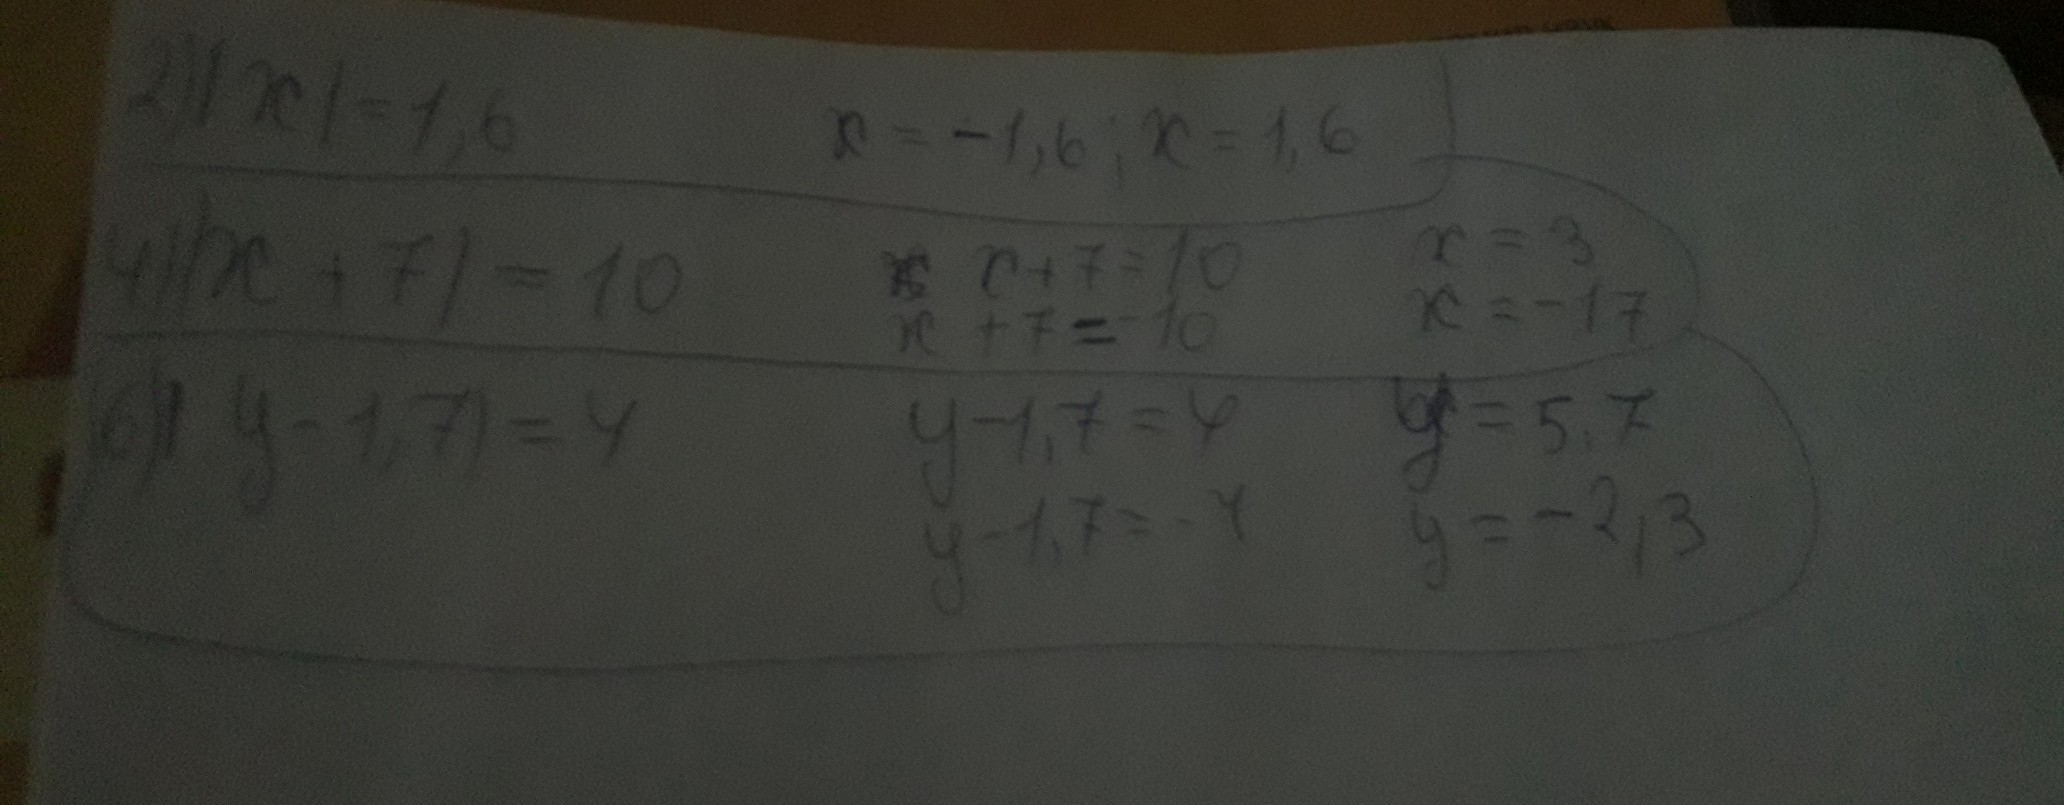 2) |x| = 1,6 x = -1,6; x = 1,6
4) |x + 7| = 10 x + 7 = 10 x = 3
x + 7 = -10 x = -17
6) |y - 1,7| = 4 y - 1,7 = 4 y = 5,7
y - 1,7 = -4 y = -2,3